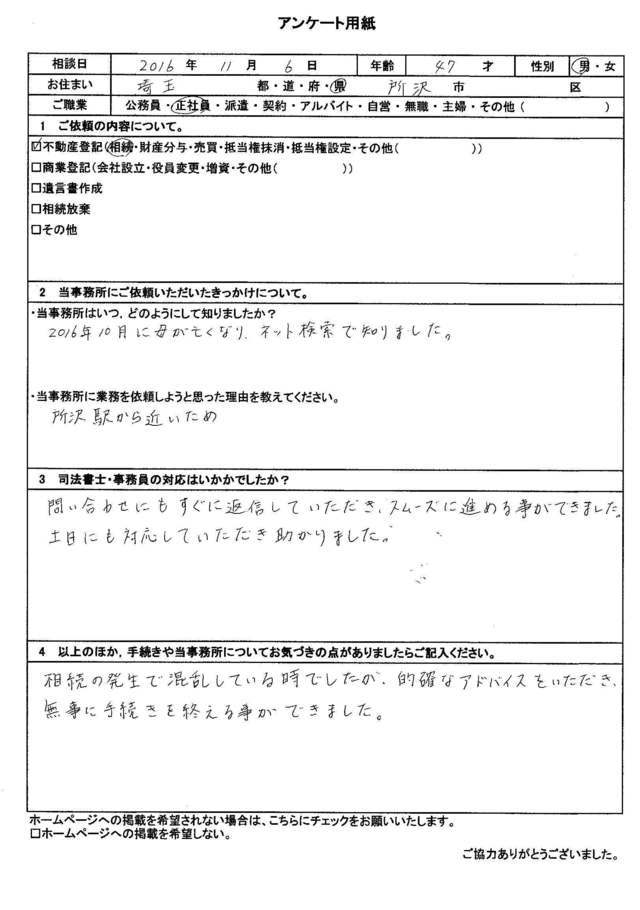 アンケート用紙
相談日 2016 年 11 月 6 日 年齢 47 才 性別 男・女
お住まい 埼玉 都・道・府・県 所沢 市 区
ご職業 公務員・正社員・派遣・契約・アルバイト・自営・無職・主婦・その他( )
1 ご依頼の内容について。
☑不動産登記(相続・財産分与・売買・抵当権抹消・抵当権設定・その他( ))
□商業登記(会社設立・役員変更・増資・その他( ))
□遺言書作成
□相続放棄
□その他
2 当事務所にご依頼いただいたきっかけについて。
・当事務所はいつ、どのようにして知りましたか?
2016年10月に母が亡くなり、ネット検索で知りました。
・当事務所に業務を依頼しようと思った理由を教えてください。
所沢駅から近いため
3 司法書士・事務員の対応はいかかでしたか?
問い合わせにもすぐに返信していただき、スムーズに進める事ができました。
土日にも対応していただき助かりました。
4 以上のほか、手続きや当事務所についてお気づきの点がありましたらご記入ください。
相続の発生で混乱している時でしたが、的確なアドバイスをいただき、
無事に手続きを終える事ができました。
ホームページへの掲載を希望されない場合は、こちらにチェックをお願いいたします。
□ホームページへの掲載を希望しない。
ご協力ありがとうございました。